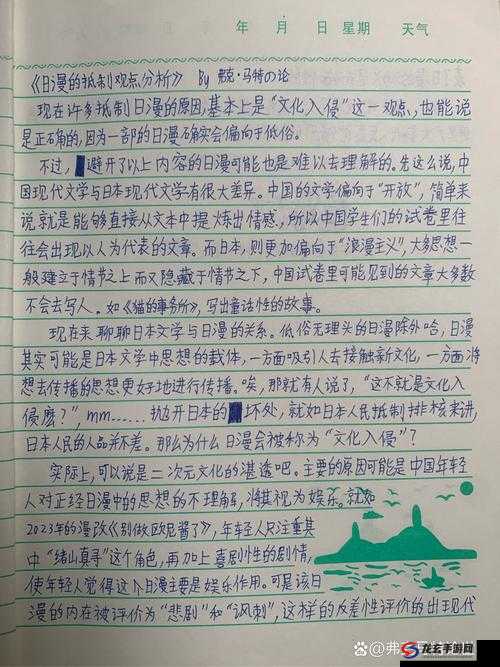 年 月 日 星期 天气
《日漫的抵制观点分析》 By 弗克·马特の论
现在许多抵制日漫的原因,基本上是“文化入侵”这一观点,也能说
是正确的,因为一部的日漫确实会偏向于低俗。
不过,避开了以上内容的日漫可能也是难以去理解的。先这么说,中
国现代文学与日本现代文学有很大差异。中国的文学偏向于“开放”,简单来
说就是能够直接从文本中提炼出情感,所以中国学生们的试卷里往
往会出现以人为代表的文章。而日本,则更加偏向于“浪漫主义”,大多思想一
般建立于情节之上而又隐藏于情节之下,中国试卷里可能见到的文章大多数
不会去写人。如《猫的事务所》,写出童话性的故事。
现在来聊聊日本文学与日漫的关系。低俗无理头的日漫除外哈,日漫
其实可能是日本文学中思想的载体,一方面吸引人去接触新文化,一方面将
想去传播的思想更好地进行传播。唉,那就有人说了,“这不就是文化入
侵麽?”,mm……抛开日本的坏处,就如日本人民抵制排核来讲,
日本人民的人品并不差。那么为什么日漫会被称为“文化入侵”?
实际上,可以说是二次元文化的渗透吧。主要的原因可能是中国年轻
人对正经日漫中的思想的不理解,将其视为娱乐。就如
2023年的漫改《别做欧尼酱了》,年轻人只注重其
中“绪山真寻”这个角色,再加上喜剧性的剧情,
使年轻人觉得这个日漫主要是娱乐作用。可是该日
漫的内在被评价为“悲剧”和“讽刺”,这样的反差性评价的出现代
龙玄手游网